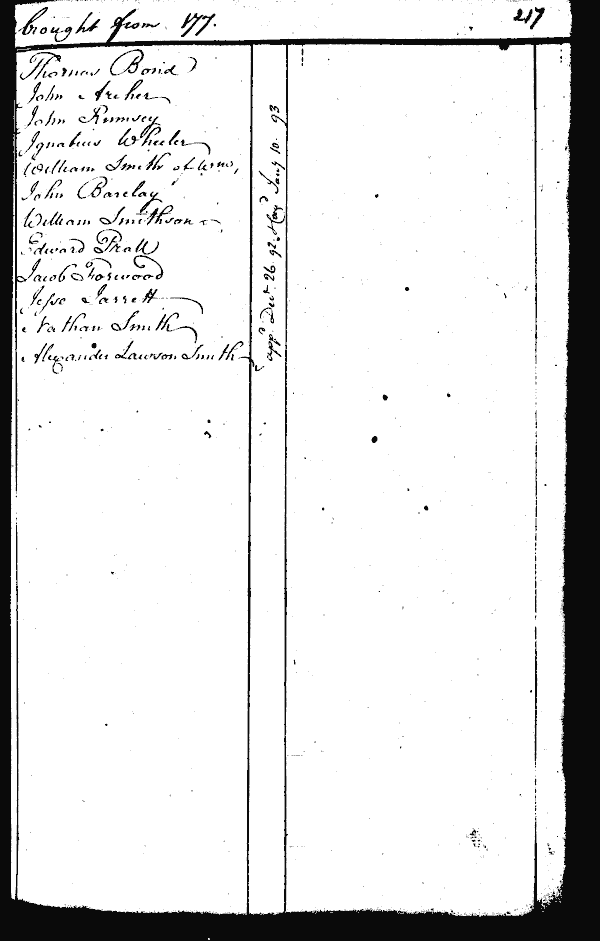 brought from 177.
217
Thomas Bond
John Archer
John Rumsey
Ignatius Wheeler
William Smith of Wm,
John Barclay
William Smithson
Edward Prall
Jacob Forwood
Jesse Jarrett
Nathan Smith
Alexander Lawson Smith
app.d Dec.r 26. 92. Jan.y 10. 93